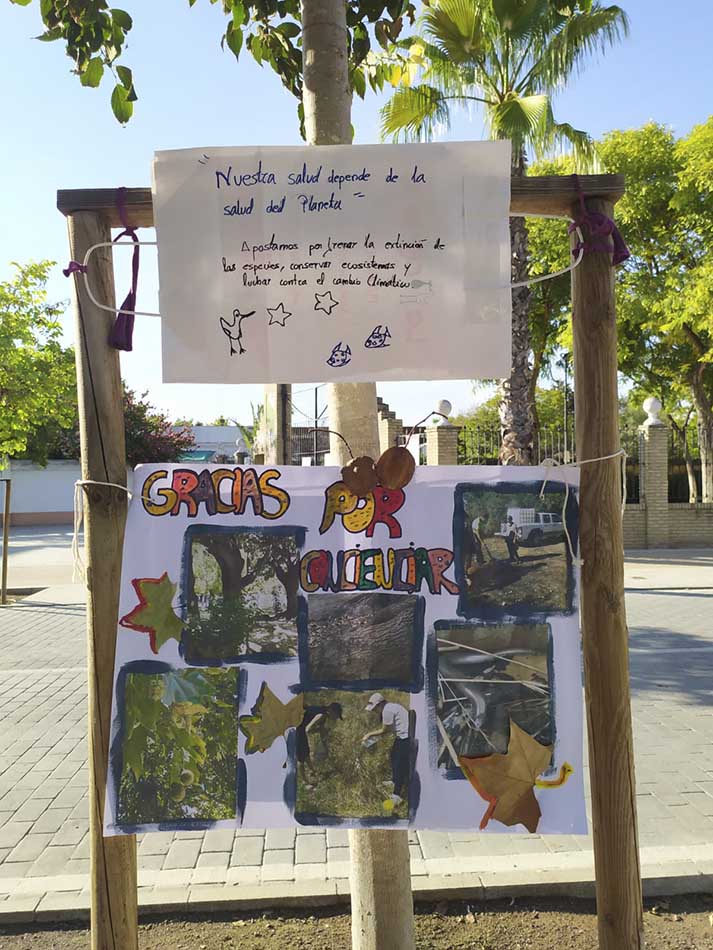 "Nuestra salud depende de la
salud del Planeta"
Apostamos por frenar la extinción de
las especies, conservar ecosistemas y
luchar contra el cambio Climático
GRACIAS POR
CONCIENCIAR